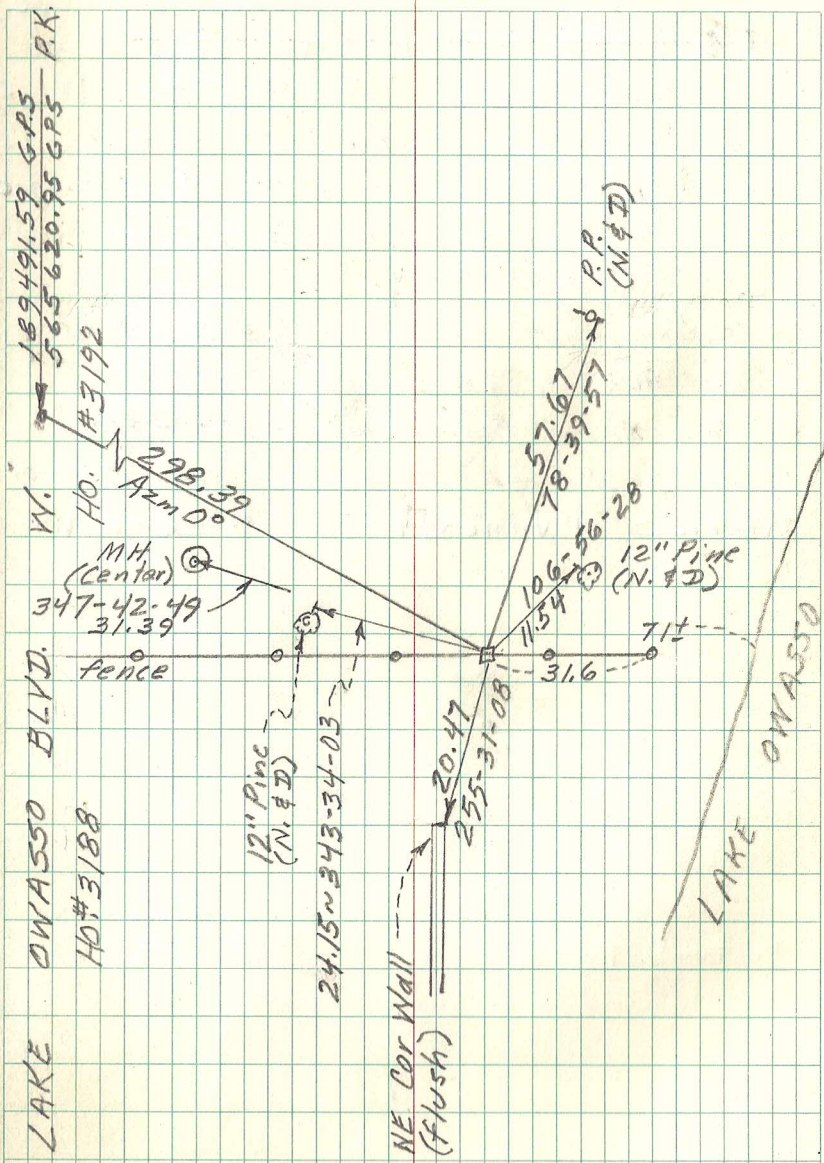 LAKE OWASSO BLVD. W.
189491.59 G.P.S
565620.95 GPS
P.K.
HO.#3188
HO. #3192
298.39
Azm 0°
MH
(Center)
347-42-49
31.39
fence
12" Pine
(N.&D)
24.15~343-34-03
NE Cor Wall
(flush)
20.47
255-31-08
57.67
78-39-57
P.P.
(N.&D)
106-56-28
11.54
12" Pine
(N.&D)
31.6
71±
LAKE OWASSO